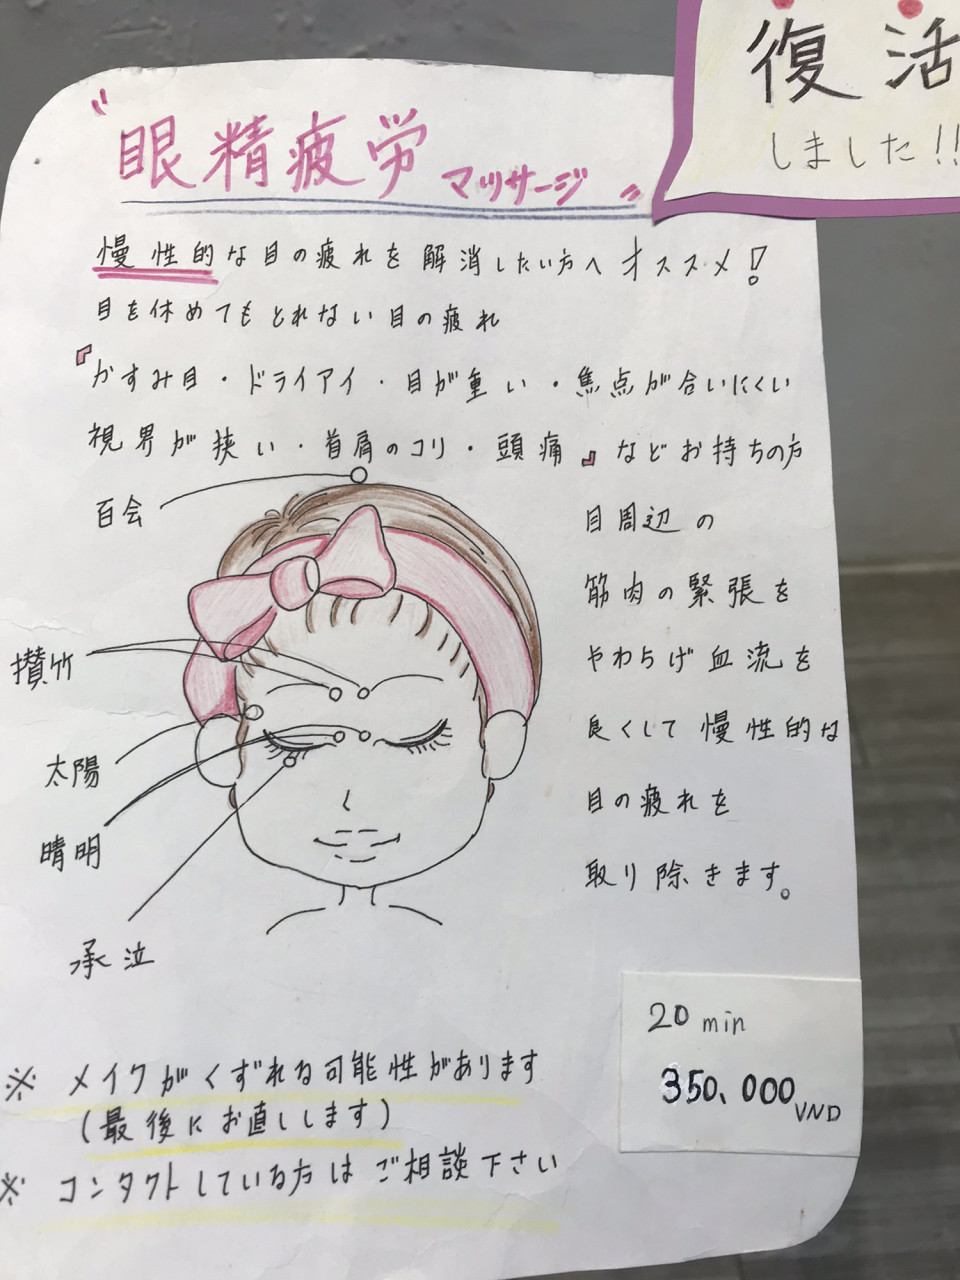 復活
しました!!
〝眼精疲労 マッサージ〟
慢性的な目の疲れを解消したい方へオススメ!
目を休めてもとれない目の疲れ
『かすみ目・ドライアイ・目が重い・焦点が合いにくい
視界が狭い・首肩のコリ・頭痛』などお持ちの方
百会
攅竹
太陽
晴明
承泣
目周辺の
筋肉の緊張を
やわらげ血流を
良くして慢性的な
目の疲れを
取り除きます。
20 min
350,000 VND
※ メイクがくずれる可能性があります
(最後にお直しします)
※ コンタクトしている方はご相談下さい